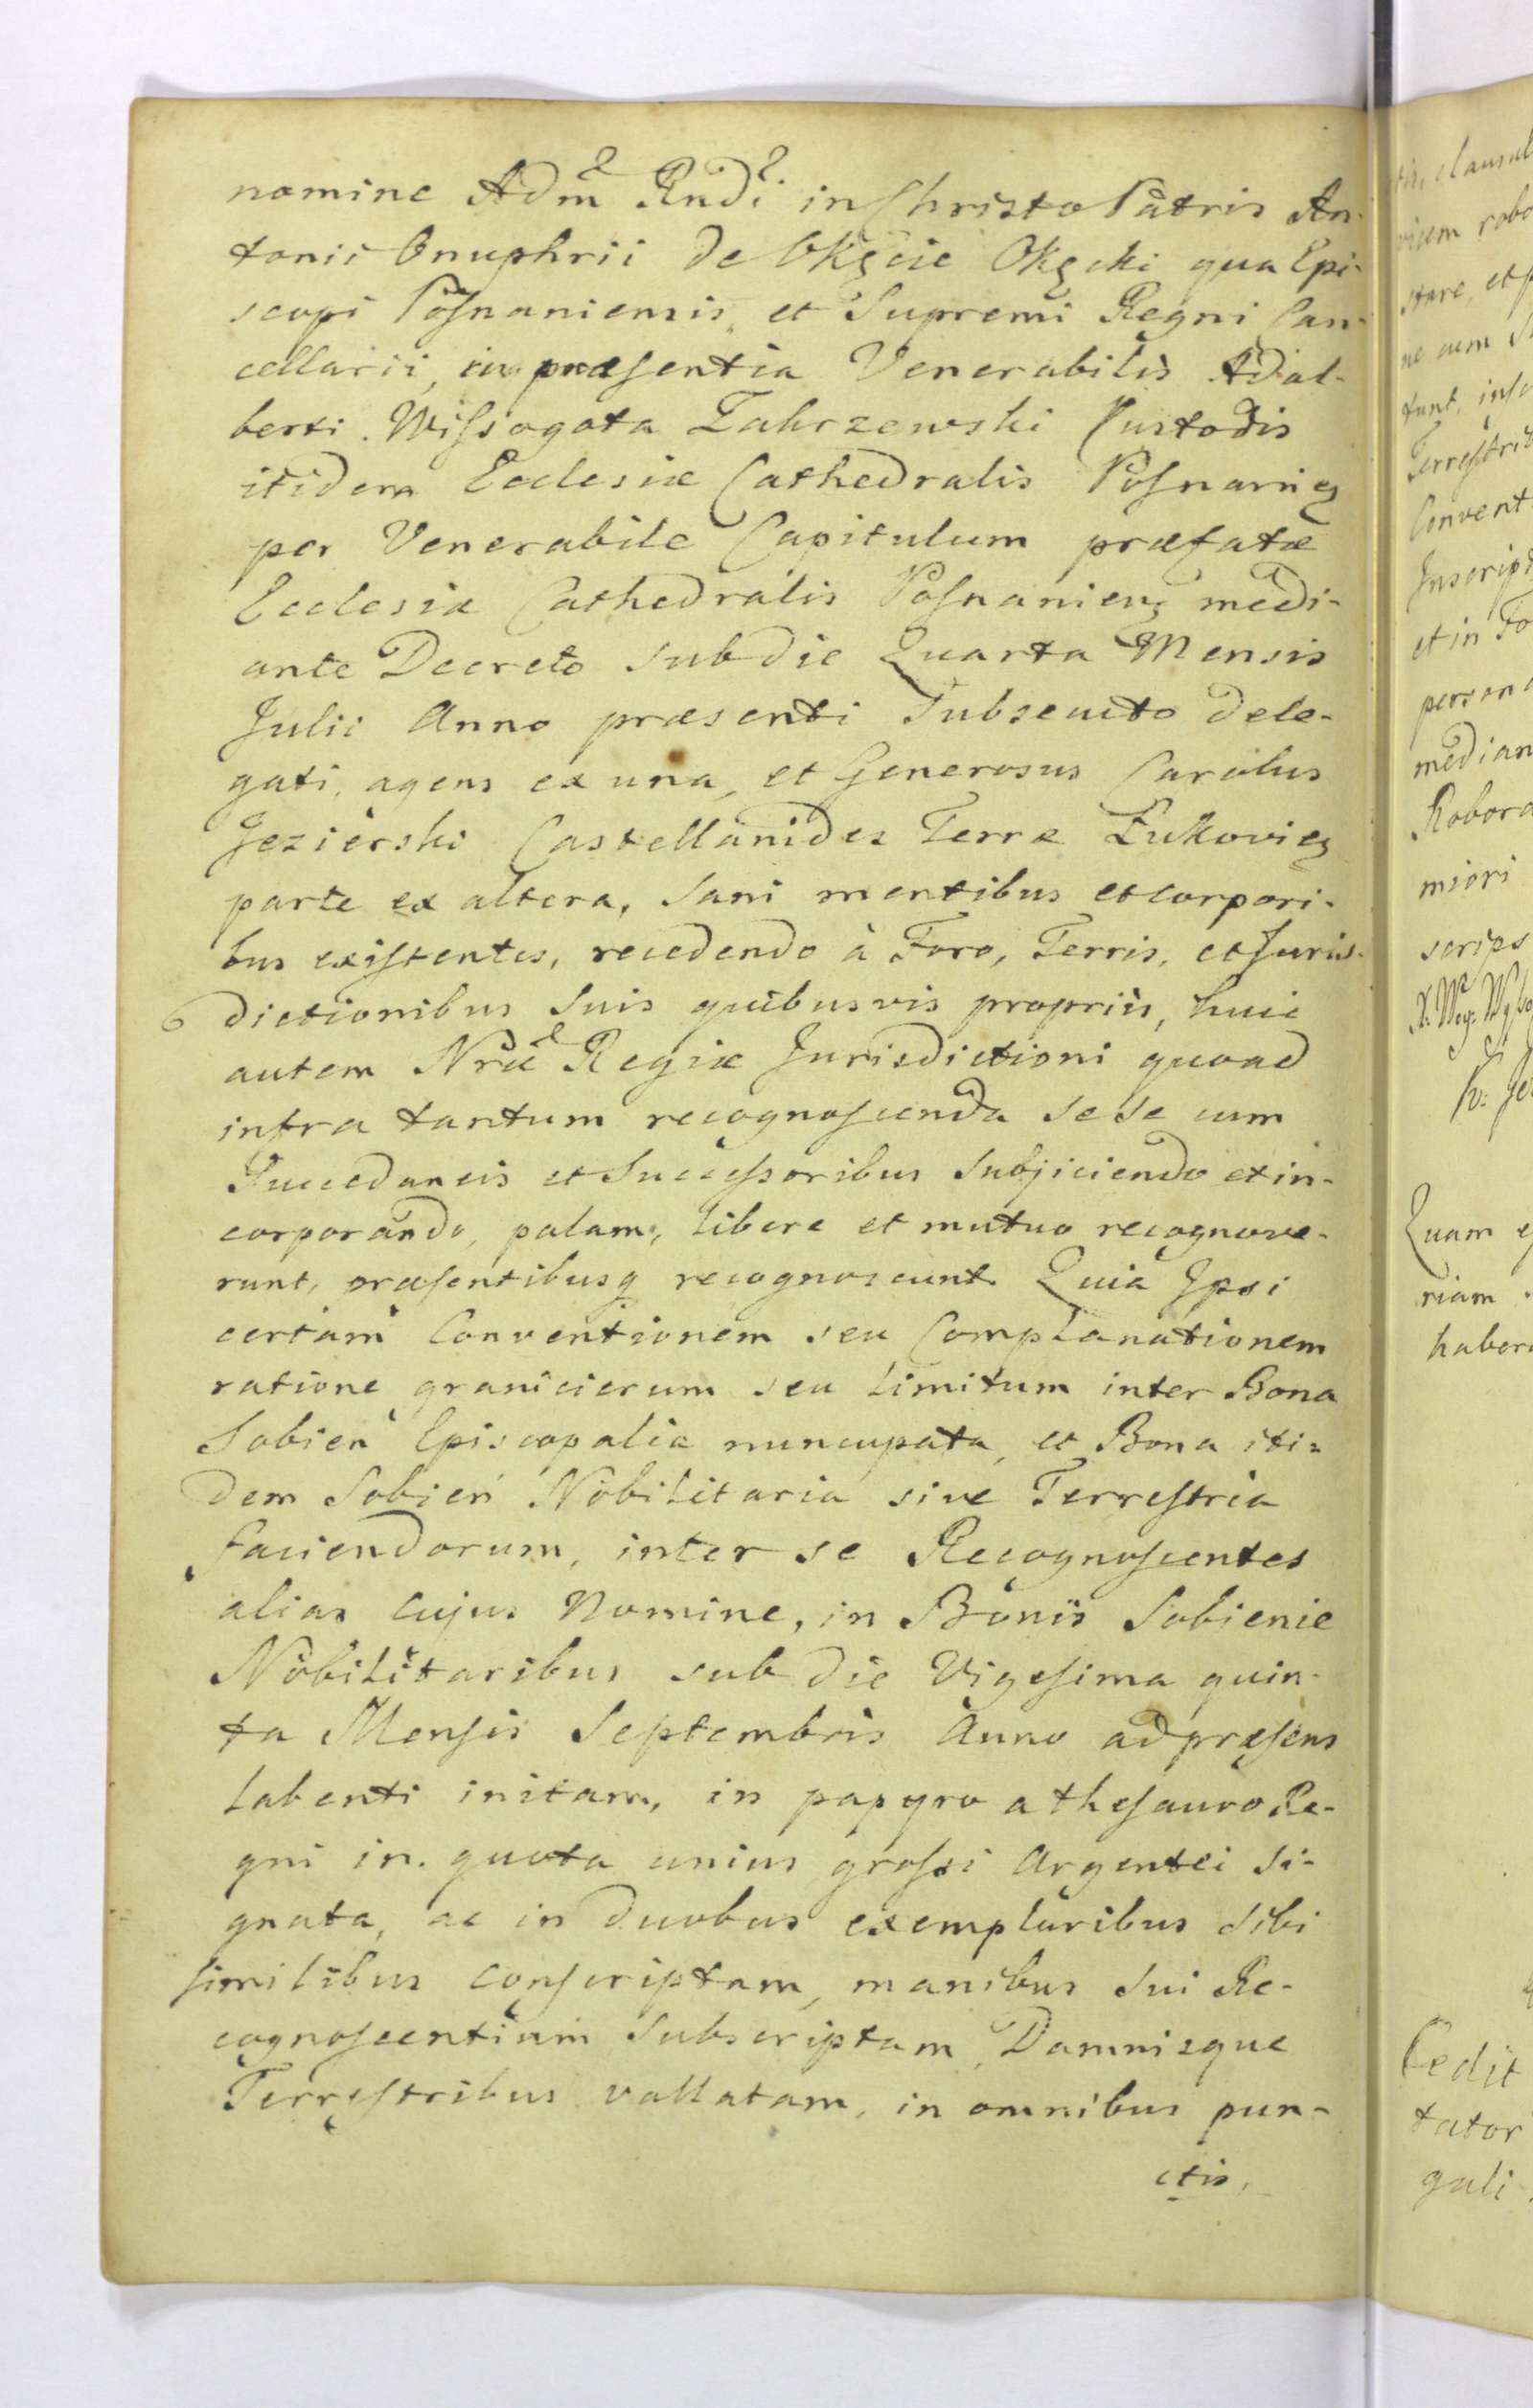 nomine Adm̃ Rndi in Christo Patris An-
tonii Onuphrii de Okęcie Okęcki qua Epi-
scopi Posnaniensis et Supremi Regni Can-
cellarii, in præsentia Venerabilis Adal-
berti Wissogota Zakrzewski Custodis
itidem Ecclesiæ Cathedralis Posnanien
per Venerabile Capitulum præfatæ
Ecclesiæ Cathedralis Posnanien medi-
ante Decreto sub die Quarta Mensis
Julii Anno præsenti Subsecuto dele-
gati, agens ex una, et Generosus Carolus
Jezierski Castellanides Terræ Łukovien
parte ex altera, Sani mentibus et corpori-
bus existentes, recedendo à Foro, Terris, et Juris-
dictionibus Suis quibusvis propriis, huic
autem Nræ Regiæ Jurisdictioni quoad
infra tantum recognoscenda sese cum
Succedaneis et Successoribus Subjiciendo et in-
corporando, palam, libere et mutuo recognove-
runt, præsentibusq recognoscunt. Quia Ipsi
certam Conventionem seu Complanationem
ratione granicierum seu limitum inter Bona
Sobień Episcopalia nuncupata, et Bona iti-
dem Sobień Nobilitaria sive Terrestria
faciendorum, inter se Recognoscentes
alias cujus Nomine, in Bonis Sobienie
Nobilitaribus sub die Vigesima quin-
ta Mensis Septembris Anno ad præsens
labenti initam, in papyro a thesauro Re-
gni in quota unius grossi Argentei Si-
gnata, ac in duobus exemplaribus Sibi
similibus conscriptam, manibus Sui Re-
cognoscentium Subscriptam, Damnisque
Terrestribus vallatam, in omnibus pun-
ctis,
clausul
robo
stare, et
ne cum
tunt, insc
Terrestri
Convent
Inscript
et in Fo
person
median
Robora
miori
scrips
Quam
riam
haber
Cedit
tator
guli